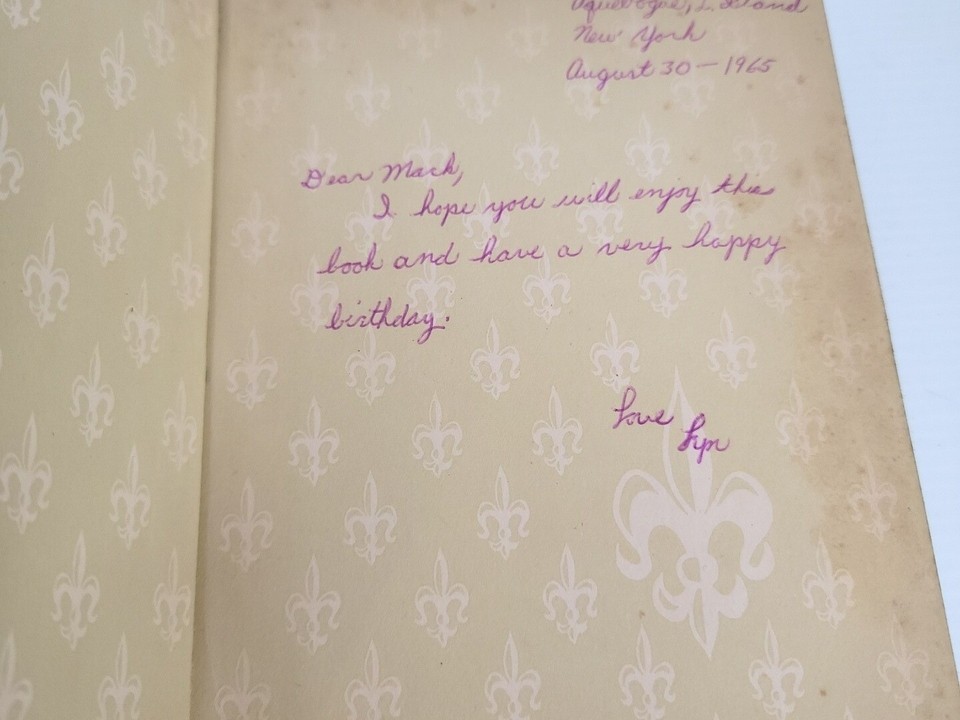 Aquebogue, L. Island
New York
August 30 — 1965
Dear Mack,
I hope you will enjoy this
book and have a very happy
birthday.
Love
Lyn